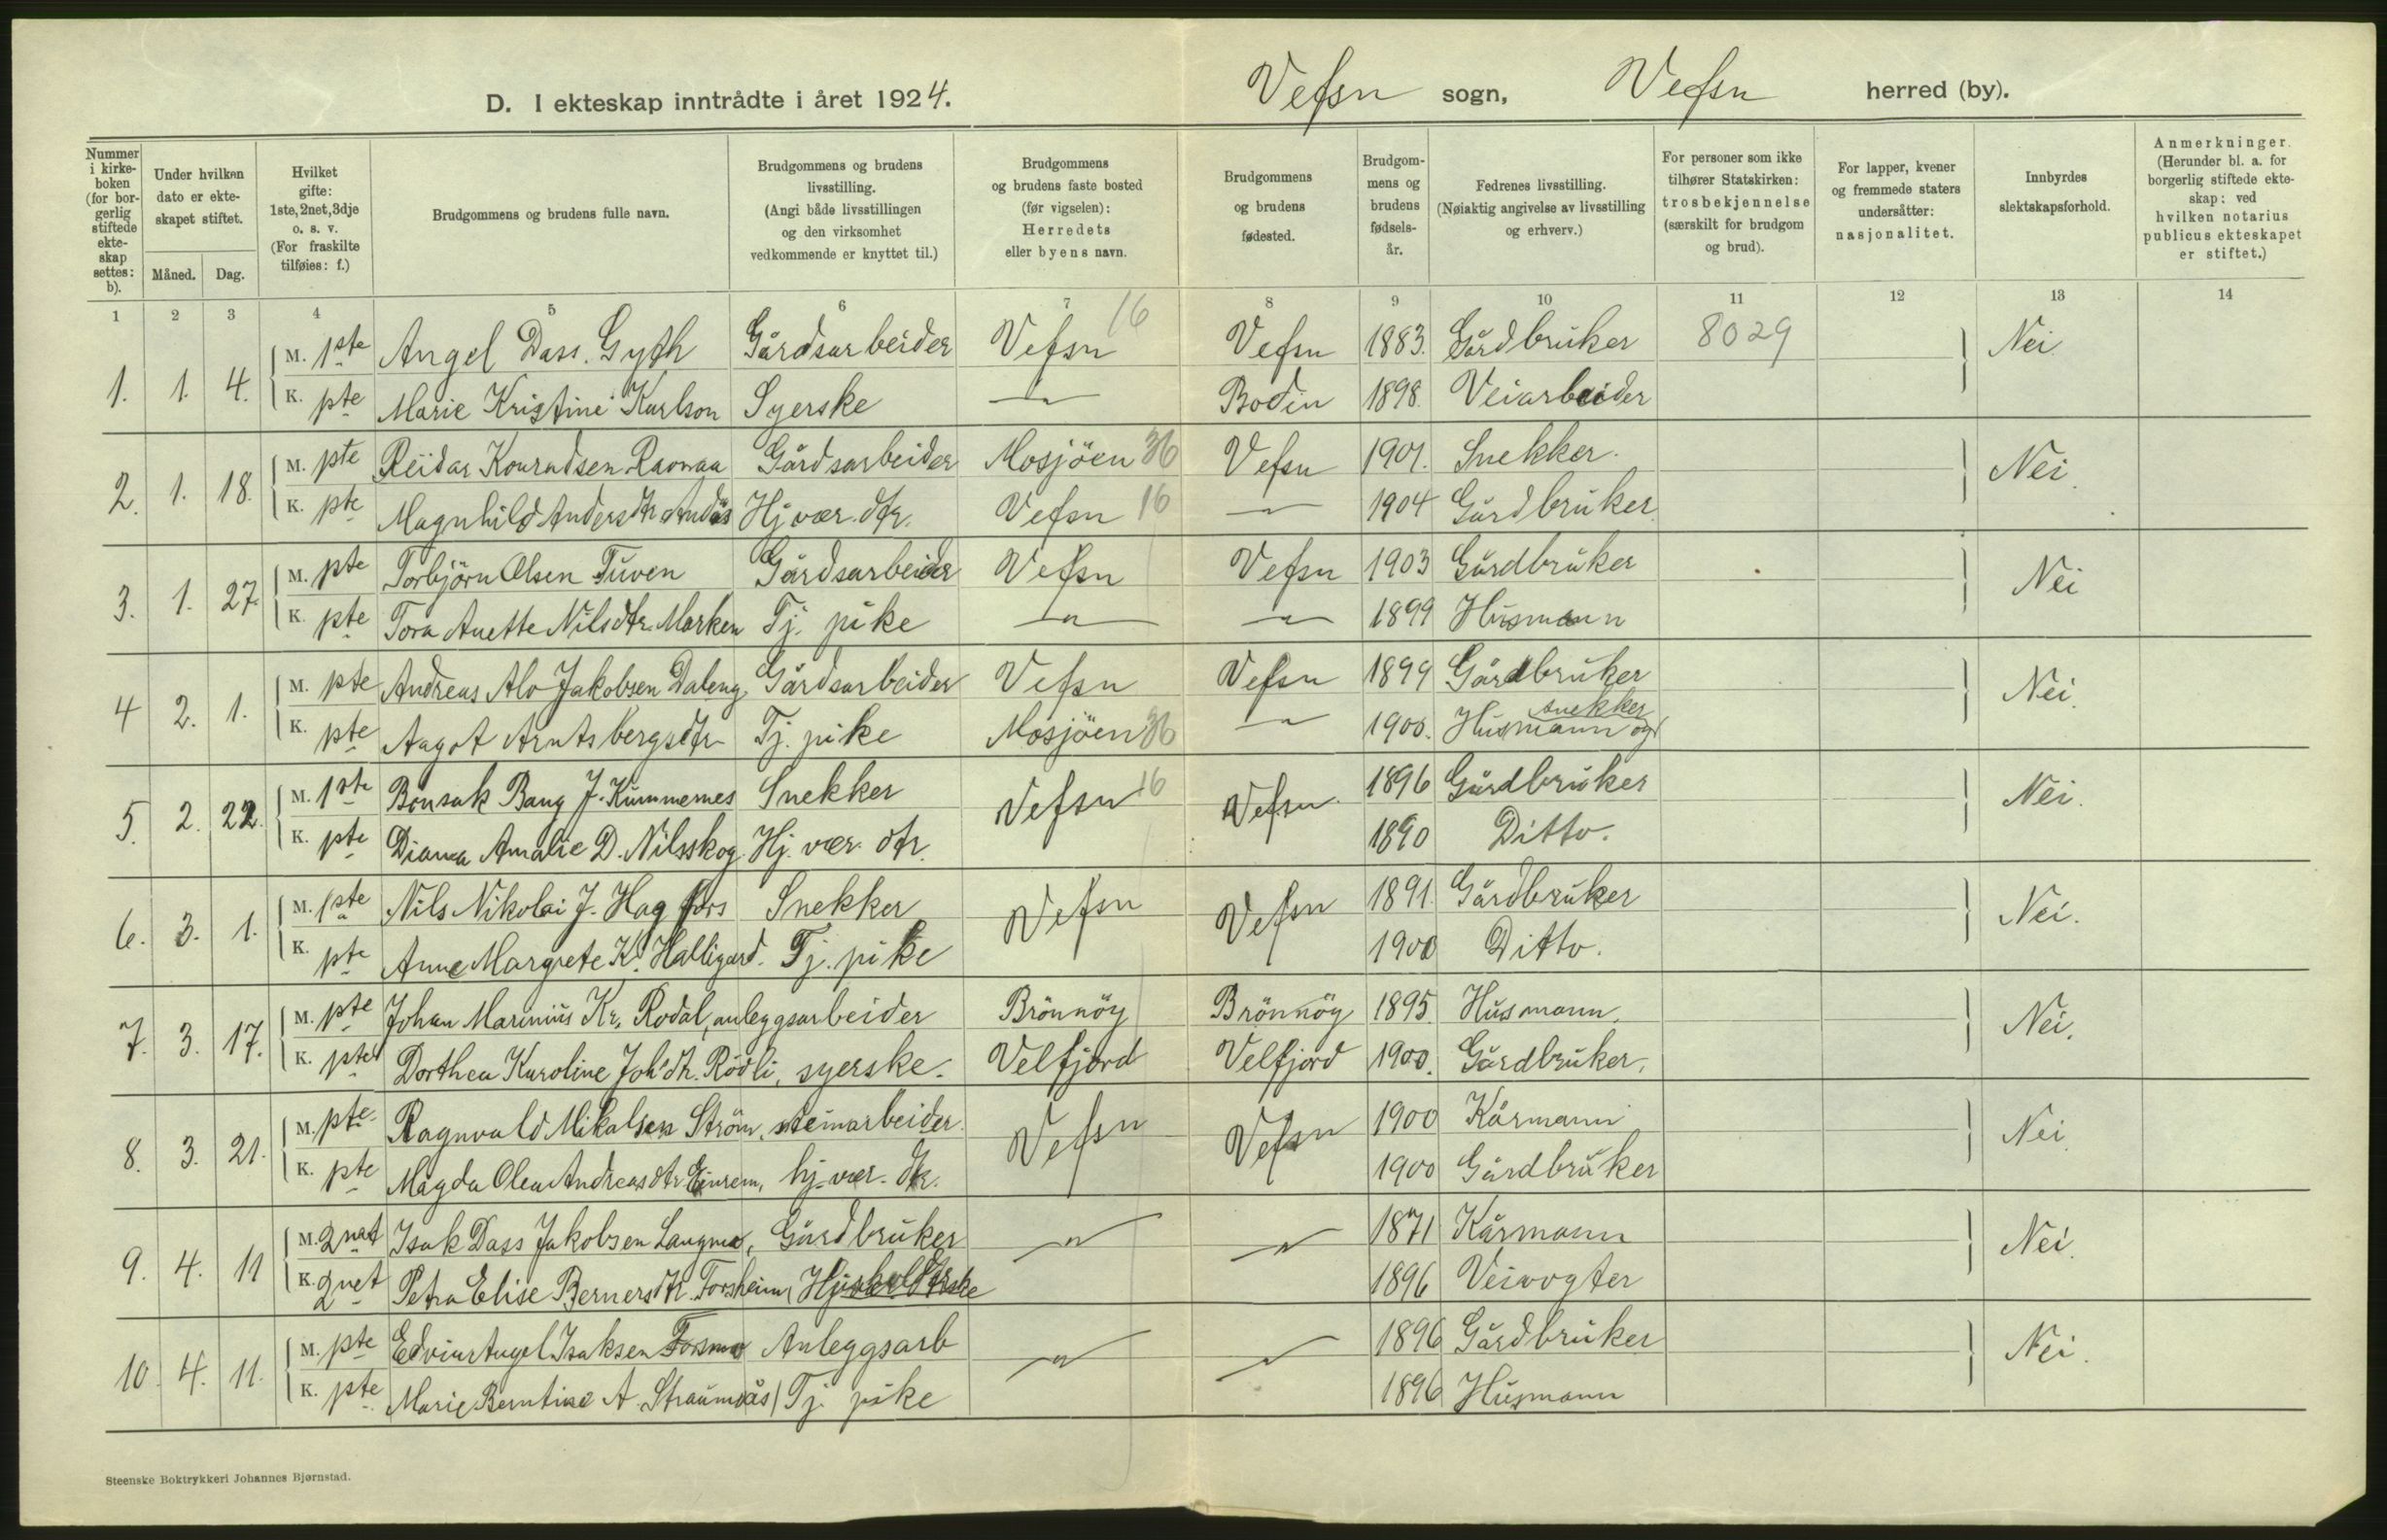 D. I ekteskap inntrådte i året 1924. Vefsn sogn, Vefsn herred (by).
Nummer i kirke- boken (for bor- gerlig stiftede ekte- skap settes: b).
Under hvilken dato er ekte- skapet stiftet.
Måned. Dag.
Hvilket gifte: 1ste, 2net, 3dje o. s. v. (For fraskilte tilføies: f.)
Brudgommens og brudens fulle navn.
Brudgommens og brudens livsstilling. (Angi både livsstillingen og den virksomhet vedkommende er knyttet til.)
Brudgommens og brudens faste bosted (før vigselen): Herredets eller byens navn.
Brudgommens og brudens fødested.
Brudgom- mens og brudens fødsels- år.
Fedrenes livsstilling. (Nøiaktig angivelse av livsstilling og erhverv.)
For personer som ikke tilhører Statskirken: trosbekjennelse (særskilt for brudgom og brud).
For lapper, kvener og fremmede staters undersåtter: nasjonalitet.
Innbyrdes slektskapsforhold.
Anmerkninger. (Herunder bl. a. for borgerlig stiftede ekte- skap: ved hvilken notarius publicus ekteskapet er stiftet.)
1 2 3 4 5 6 7 8 9 10 11 12 13 14
1. 1. 4. M. 1ste Angel Dass. Gyth Gårdsarbeider Vefsn 16 Vefsn 1883. Gårdbruker 8029 Nei.
K. pte Marie Kristine Karlson Syerske —"— Bodin 1898. Veiarbeider
2. 1. 18. M. pte Reidar Konradsen Ravnaa Gårdsarbeider Mosjöen 36 Vefsn 1901. Snekker. Nei.
K. pte Magnhild Andersdtr Andås Hj. vær. dtr. Vefsn 16 —"— 1904 Gårdbruker.
3. 1. 27. M. pte Torbjörn Olsen Tuven Gårdsarbeider Vefsn Vefsn 1903 Gårdbruker Nei
K. pte Tora Anette Nilsdtr. Marken Tj. pike —"— —"— 1899 Husmann
4 2. 1. M. pte Andreas Alo Jakobsen Daleng Gårdsarbeider Vefsn Vefsn 1899 Gårdbruker Nei.
K. pte Aagot Arntsbergsdtr Tj. pike Mosjöen 36 —"— 1900. Husmann og snekker
5. 2. 22. M. 1ste Bonsak Bang J. Kummernes Snekker Vefsn 16 Vefsn. 1896 Gårdbruker Nei.
K. pte Diana Amalie D. Nilsskog Hj. vær. dtr. 1890 Ditto.
6. 3. 1. M. 1ste Nils Nikolai J. Hagfors Snekker Vefsn Vefsn 1891. Gårdbruker Nei.
K. pte Anne Margrete K. Halligard. Tj. pike 1900 Ditto.
7. 3. 17. M. pte Johan Marinius Kr. Rodal, anleggsarbeider Brönnöy Brönnöy 1895. Husmann. Nei.
K. pte Dorthea Karoline Joh'dtr. Rödli, syerske. Velfjord Velfjord 1900. Gårdbruker.
8. 3. 21. M. pte Ragnvald Mikalsen Ström, steinarbeider. Vefsn Vefsn 1900 Kårmann Nei.
K. pte Magda Olea Andreasdtr Einrem, hj. vær. dtr. 1900 Gårdbruker
9. 4. 11 M. 2net Isak Dass Jakobsen Langmo, Gårdbruker —"— —"— 1871 Kårmann Nei.
K. 2net Petra Elise Bernersdtr. Forsheim, 1896 Veivogter
10. 4. 11. M. pte Edvin Angel Isaksen Forsmo Anleggsarb —"— —"— 1896 Gårdbruker Nei.
K. pte Marie Berntine A. Straumdås Tj. pike 1896 Husmann
Steenske Boktrykkeri Johannes Bjørnstad.